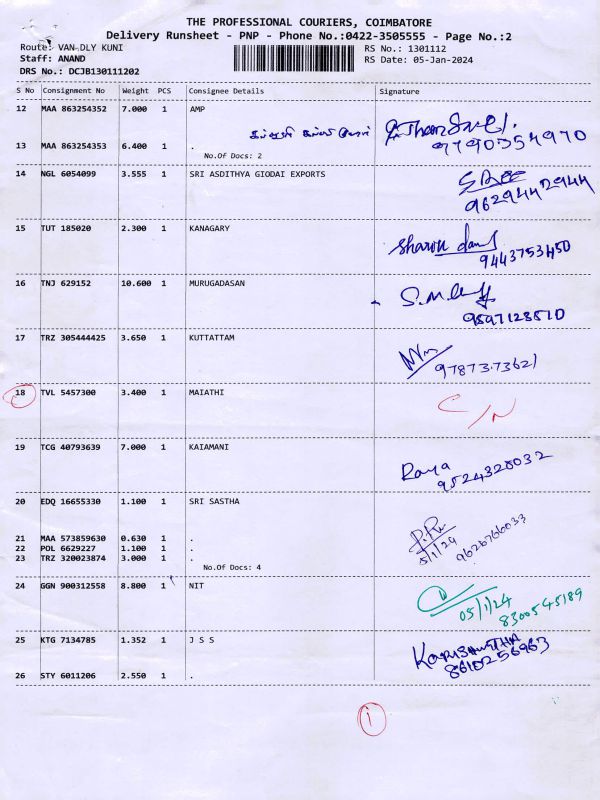 THE PROFESSIONAL COURIERS, COIMBATORE
Delivery Runsheet - PNP - Phone No.:0422-3505555 - Page No.:2
Route: VAN-DLY KUNI
RS No.: 1301112
Staff: ANAND
RS Date: 05-Jan-2024
DRS No.: DCJB130111202
S No Consignment No Weight PCS Consignee Details Signature
12 MAA 863254352 7.000 1 AMP
13 MAA 863254353 6.400 1 .
No.Of Docs: 2
14 NGL 6054099 3.555 1 SRI ASDITHYA GIODAI EXPORTS
9629442944
15 TUT 185020 2.300 1 KANAGARY
Sharon
9443753450
16 TNJ 629152 10.600 1 MURUGADASAN
17 TRZ 305444425 3.650 1 KUTTATTAM
9787373621
18 TVL 5457300 3.400 1 MAIATHI
C/N
19 TCG 40793639 7.000 1 KAIAMANI
9524328032
20 EDQ 16655330 1.100 1 SRI SASTHA
21 MAA 573859630 0.630 1 .
22 POL 6629227 1.100 1 .
5/1/24
23 TRZ 320023874 3.000 1 .
No.Of Docs: 4
24 GGN 900312558 8.800 1 NIT
05/1/24
8300545189
25 KTG 7134785 1.352 1 J S S
8610256963
26 STY 6011206 2.550 1 .
1